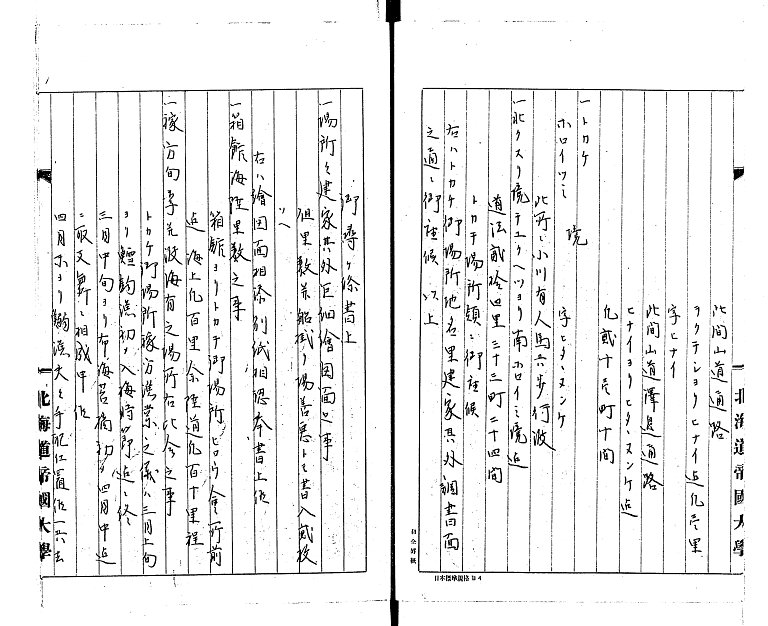 此間山道通路
ヲクテシヨリヒナイ迄凡壱里
字ヒナイ
此間山道澤邊通路
ヒナイヨリヒタヽヌンケ迄
凡貳十壱町十間
一トカケ
ホロイツミ 境 字ヒタヽヌンケ
此所ニ小川有人馬共歩行渡
一北クスリ境チユクヘツヨリ南ホロイミ境迄
道法貳拾四里三十三町二十四間
トカチ場所領ニ御座候
右ハトカケ御場所地名里建家其外調書面
之通ニ御座候 以上
北海道帝國大學
日本標準規格B4
御尋ヶ條書上
一場所々建家其外巨細繪圖面之事
但里数并船掛り場善悪トモ書入貳枚
ツヽ
右ハ繪圖面相添別紙相認奉書上候
一箱館海陸里数之事
箱館ヨリトカチ御場所ヒロウ會所前
迄海上凡百里余陸道凡百十里程
一稼方旬季先波海有之場所右比合之事
トカケ御場所稼方漁業之儀ハ三月上旬
ヨリ鱈釣漁初メ入海時節迄ニ終
三月中旬ヨリ布海苔摘初メ四月中迄
ニ取交新ニ相成申候
北海道帝國大學